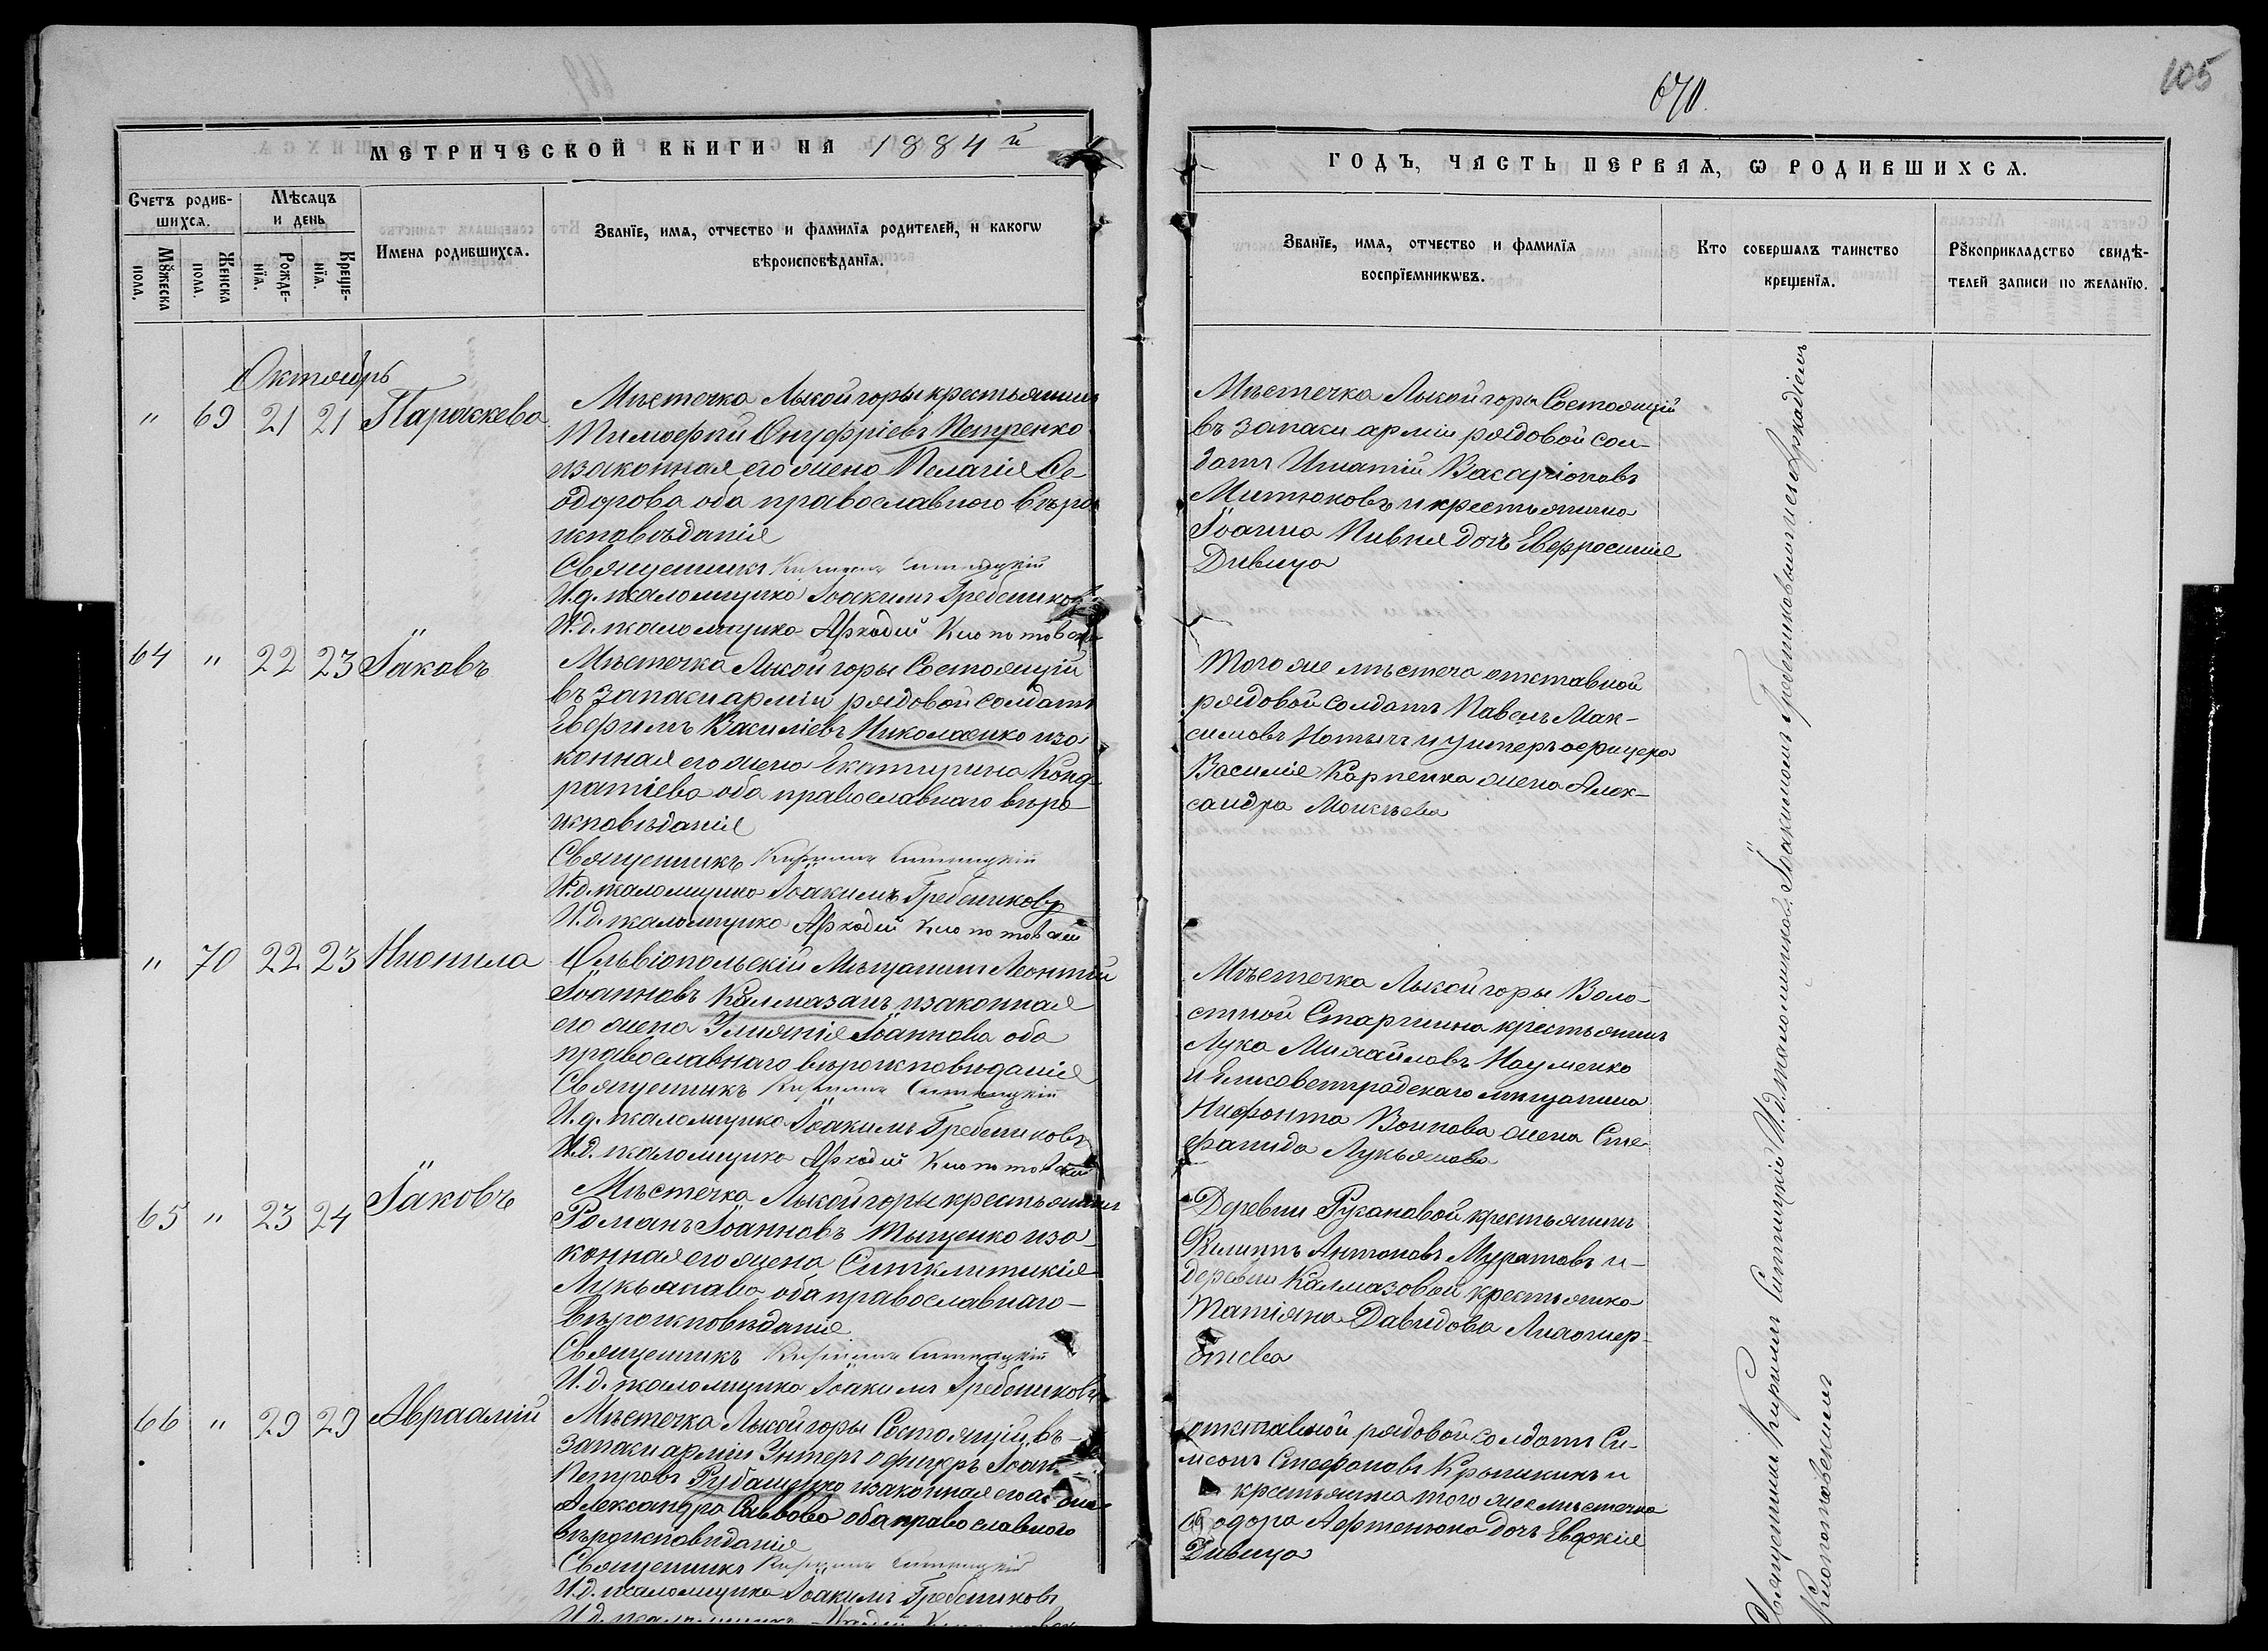 669
МЕТРИЧЕСКОЙ КНИГИ НА 1884й
Счетъ родив-
шихсѧ.
Мꙋжеска
пола.
Женска
пола.
Мѣсѧцъ
и день
Рожде-
нїѧ.
Креще-
нїѧ.
Имена родившихсѧ.
Званїе, имѧ, отчество и фамилїѧ родителей, и какогѡ
вѣроисповѣданїѧ.
Октябрь
" 69 21 21 Параскева
Мѣстечка Лысой горы крестьянинъ
Тимофей Онуфріевъ Петренко
и законная его жена Пелагія Ѳе-
одорова оба православного вѣро
исповѣданія
Священникъ Кириллъ Ситницкій
И.д. псаломщика Іоакимъ Гребениковъ
И.д. псаломщика Аркадій Клопотовскій
64 " 22 23 Іаковъ
Мѣстечка Лысой горы Состоящій
въ запаси арміи рядовой солдатъ
Евфимъ Василіевъ Николаенко и за
конная его жена Екатерина Конд-
ратіева оба православнаго вѣро
исповѣданія
Священникъ Кириллъ Ситницкій
И.д. псаломщика Іоакимъ Гребениковъ
И.д. псаломщика Аркадій Клопотовскій
" 70 22 23 Неонила
Ольвіопольскій Мѣщанинъ Леонтій
Іоанновъ Калмазанъ и законная
его жена Іоаннова оба
православнаго вѣроисповѣданія
Священникъ Кириллъ Ситницкій
И.д. псаломщика Іоакимъ Гребениковъ
И.д. псаломщика Аркадій Клопотовскій
65 " 23 24 Іаковъ
Мѣстечка Лысой горы крестьянинъ
Романъ Іоанновъ Тыщенко и за
конная его жена Синклитикія
Лукьянава оба православнаго-
вѣроисповѣданія
Священникъ Кириллъ Ситницкій
И.д. псаломщика Іоакимъ Гребениковъ
66 " 29 29 Авраамій
Мѣстечка Лысой горы Состоящій въ-
запаси арміи Унтеръ офицеръ Іоан
Петровъ Рубашенко и законная его жена
Александра Саввова оба православного
вѣроисповѣданія
Священникъ Кириллъ Ситницкій
И.д. псаломщика Іоакимъ Гребениковъ
И.д. псаломщика Аркадій
670.
105
ГОДЪ, ЧАСТЬ ПЕРВАѦ, Ѡ РОДИВШИХСѦ.
Званїе, имѧ, отчество и фамилїѧ
воспрїемникѡвъ.
Кто совершалъ таинство
крещенїѧ.
Рꙋкоприкладство свидѣ-
телей записи по желанїю.
Мѣстечка Лысой горы Состоящій
въ запаси арміи рядовой сол-
датъ Игнатій Васаріоновъ
Митюковъ и крестьянина
Іоанна Пивня дочь Евфросинія
Дивица
Того же мѣстеча отставной
рядовой солдатъ Павелъ Мак-
симовъ и унтеръ офицера
Василія Карпенка жена Алек-
сандра
Мѣстечка Лысой горы Воло-
стной Старшина крестьянинъ
Лука Михайловъ Науменко
и Елисаветградскаго мѣщанина
Нифонта Воинова жена Сте-
фанида Лукьянова
Деревни Русановой крестьянинъ
Филиппъ Антоновъ Муратовъ и-
деревни Калмазовой крестьянка
Татіяна Давидова
отставной рядовой солдатъ Си-
меонъ Стефановъ и
крестьянина того же мѣстечка
Ѳеодора Афтенюка дочь Евдокія
Дивица
Священникъ Кириллъ Ситницкій съ И.д. псаломщиковъ: Іоакимомъ Гребениковымъ и Аркадіемъ
Клопотовскимъ